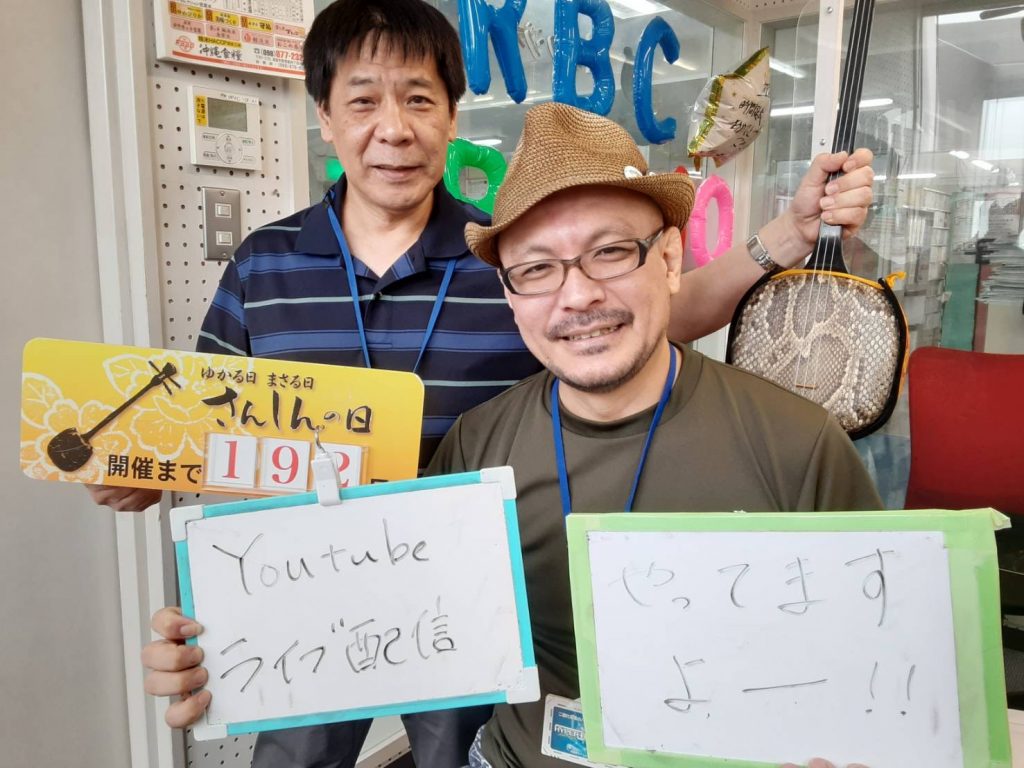 沖縄食糧
RBC
ゆかる日 まさる日
さんしんの日
開催まで 192日
Youtube
ライブ配信
やってます
よー!!